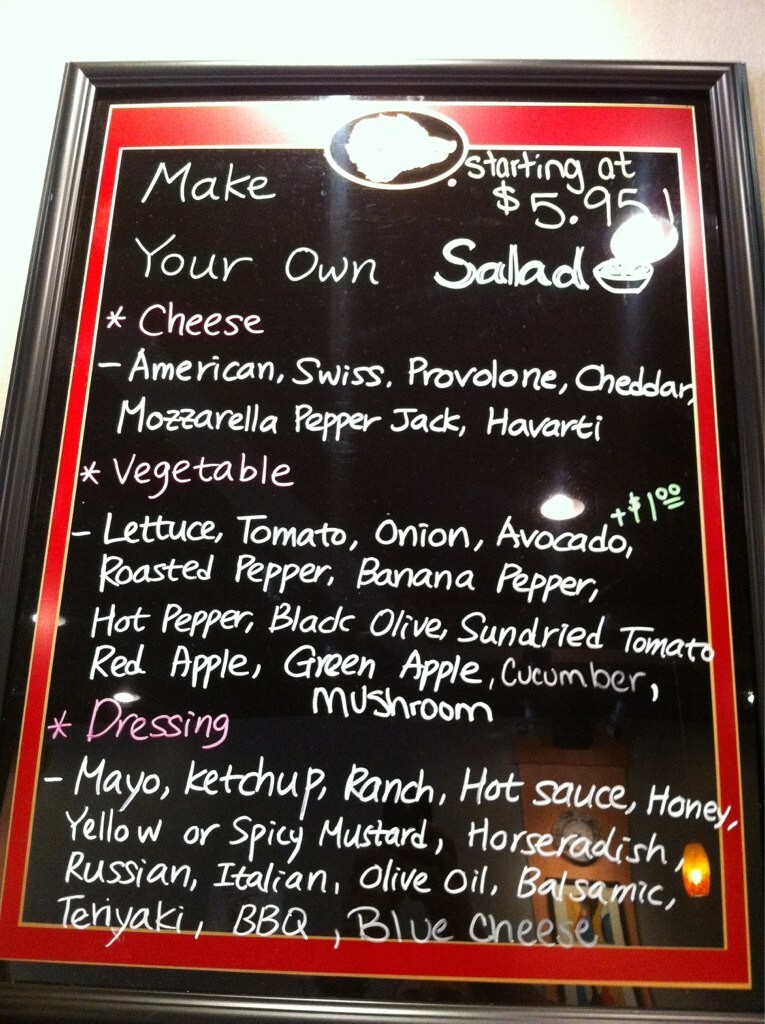 Make
starting at
$5.95!
Your Own Salad
* Cheese
- American, Swiss. Provolone, Cheddar,
Mozzarella Pepper Jack, Havarti
* Vegetable
+$1.00
- Lettuce, Tomato, Onion, Avocado,
Roasted Pepper, Banana Pepper,
Hot Pepper, Black Olive, Sundried Tomato
Red Apple, Green Apple, Cucumber,
Mushroom
* Dressing
- Mayo, Ketchup, Ranch, Hot sauce, Honey,
Yellow or Spicy Mustard, Horseradish,
Russian, Italian, Olive Oil, Balsamic,
Teriyaki, BBQ, Blue Cheese